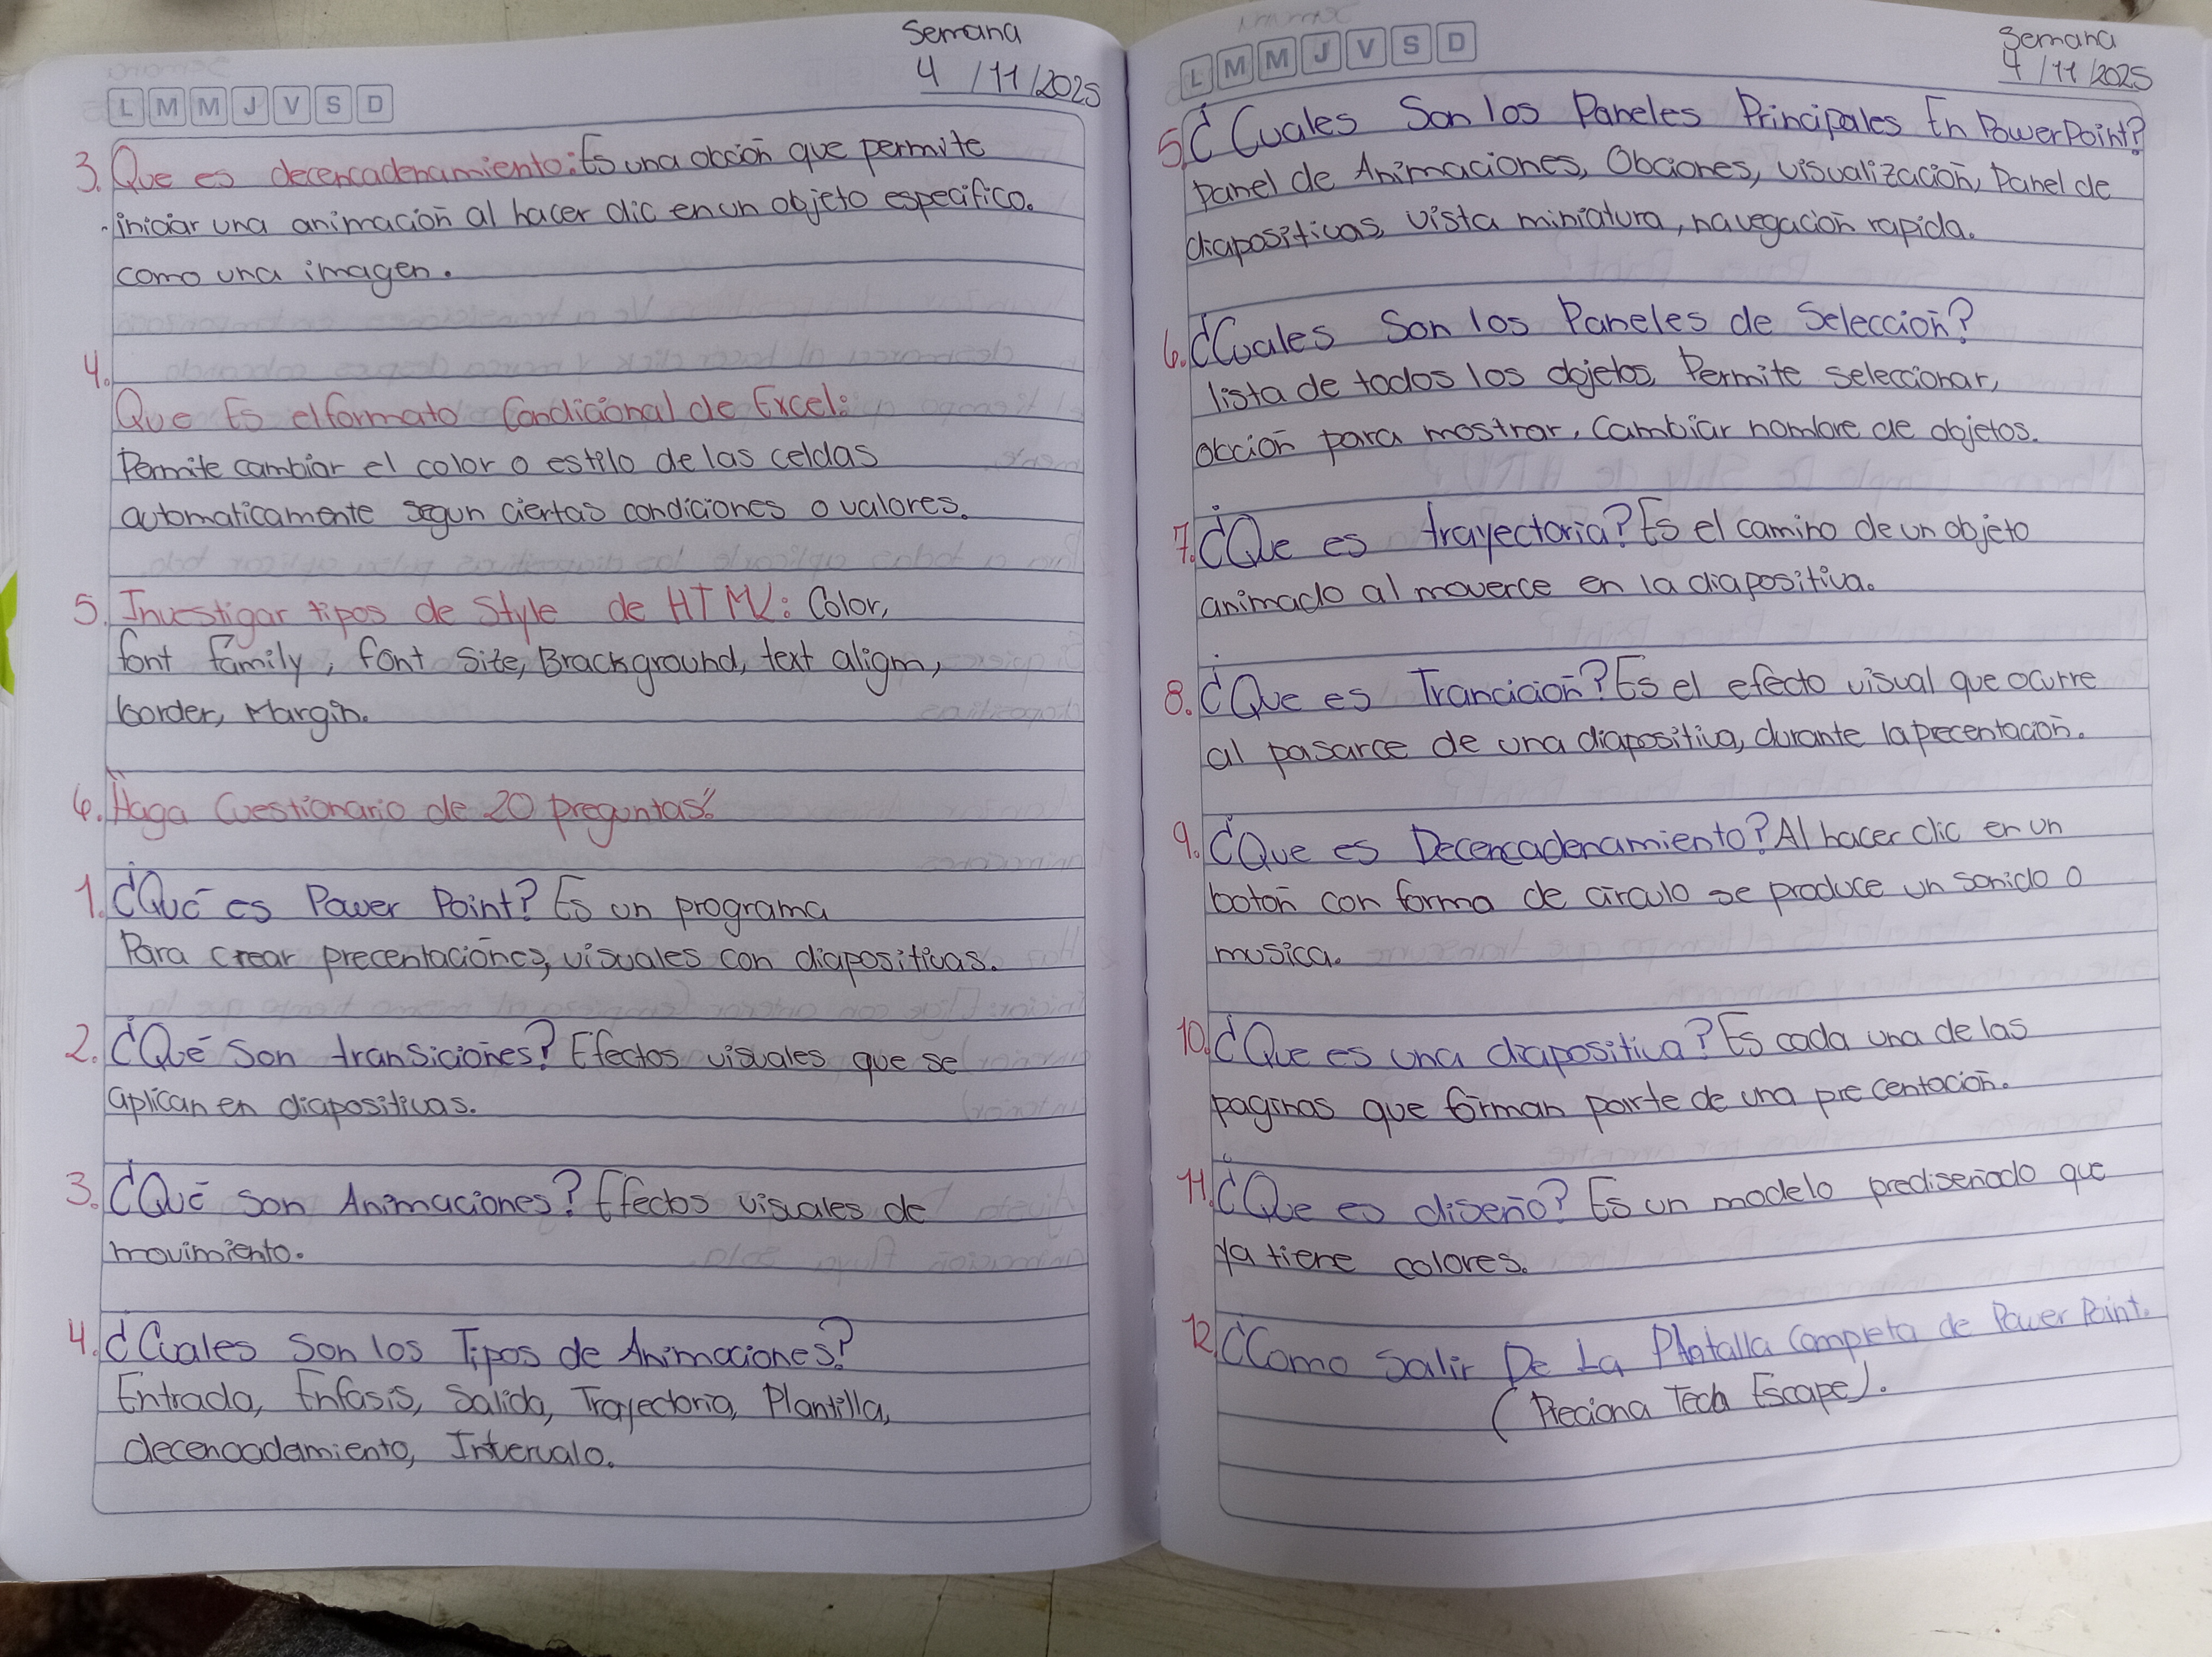 Semana
4 /11/2025
L M M J V S D
3. Que es decencadenamiento: Es una obción que permite
iniciar una animación al hacer clic en un objeto especifico.
como una imagen.
4.
Que Es el formato Condicional de Excel:
Permite cambiar el color o estilo de las celdas
automaticamente segun ciertas condiciones o valores.
5. Investigar tipos de Style de HTML: Color,
font family, font Size, Brackground, text aligm,
border, Margin.
6. Haga Cuestionario de 20 preguntas:
1. ¿Qué es Power Point? Es un programa
Para crear precentaciones, visuales con diapositivas.
2. ¿Qué Son transiciones? Efectos visuales que se
aplican en diapositivas.
3. ¿Qué son Animaciones? Efectos visuales de
movimiento.
4. ¿Cuales Son los Tipos de Animaciones?
Entrada, Enfasis, Salida, Trayectoria, Plantilla,
decencadamiento, Intervalo.
Semana
4 /11/2025
L M M J V S D
5. ¿Cuales Son los Paneles Principales En PowerPoint?
Panel de Animaciones, Obciones, visualización, Panel de
diapositivas, vista miniatura, navegación rapida.
6. ¿Cuales Son los Paneles de Selección?
lista de todos los objetos, Permite seleccionar,
obción para mostrar, Cambiar nombre de objetos.
7. ¿Que es trayectoria? Es el camino de un objeto
animado al moverce en la diapositiva.
8. ¿Que es Trancición? Es el efecto visual que ocurre
al pasarce de una diapositiva, durante la precentación.
9. ¿Que es Decencadenamiento? Al hacer clic en un
botón con forma de circulo se produce un sonido o
musica.
10. ¿Que es una diapositiva? Es cada una de las
paginas que forman parte de una precentación.
11. ¿Que es diseño? Es un modelo prediseñado que
ya tiene colores.
12. ¿Como Salir De La Plantalla Completa de Power Point.
(Preciona Tecla Escape).